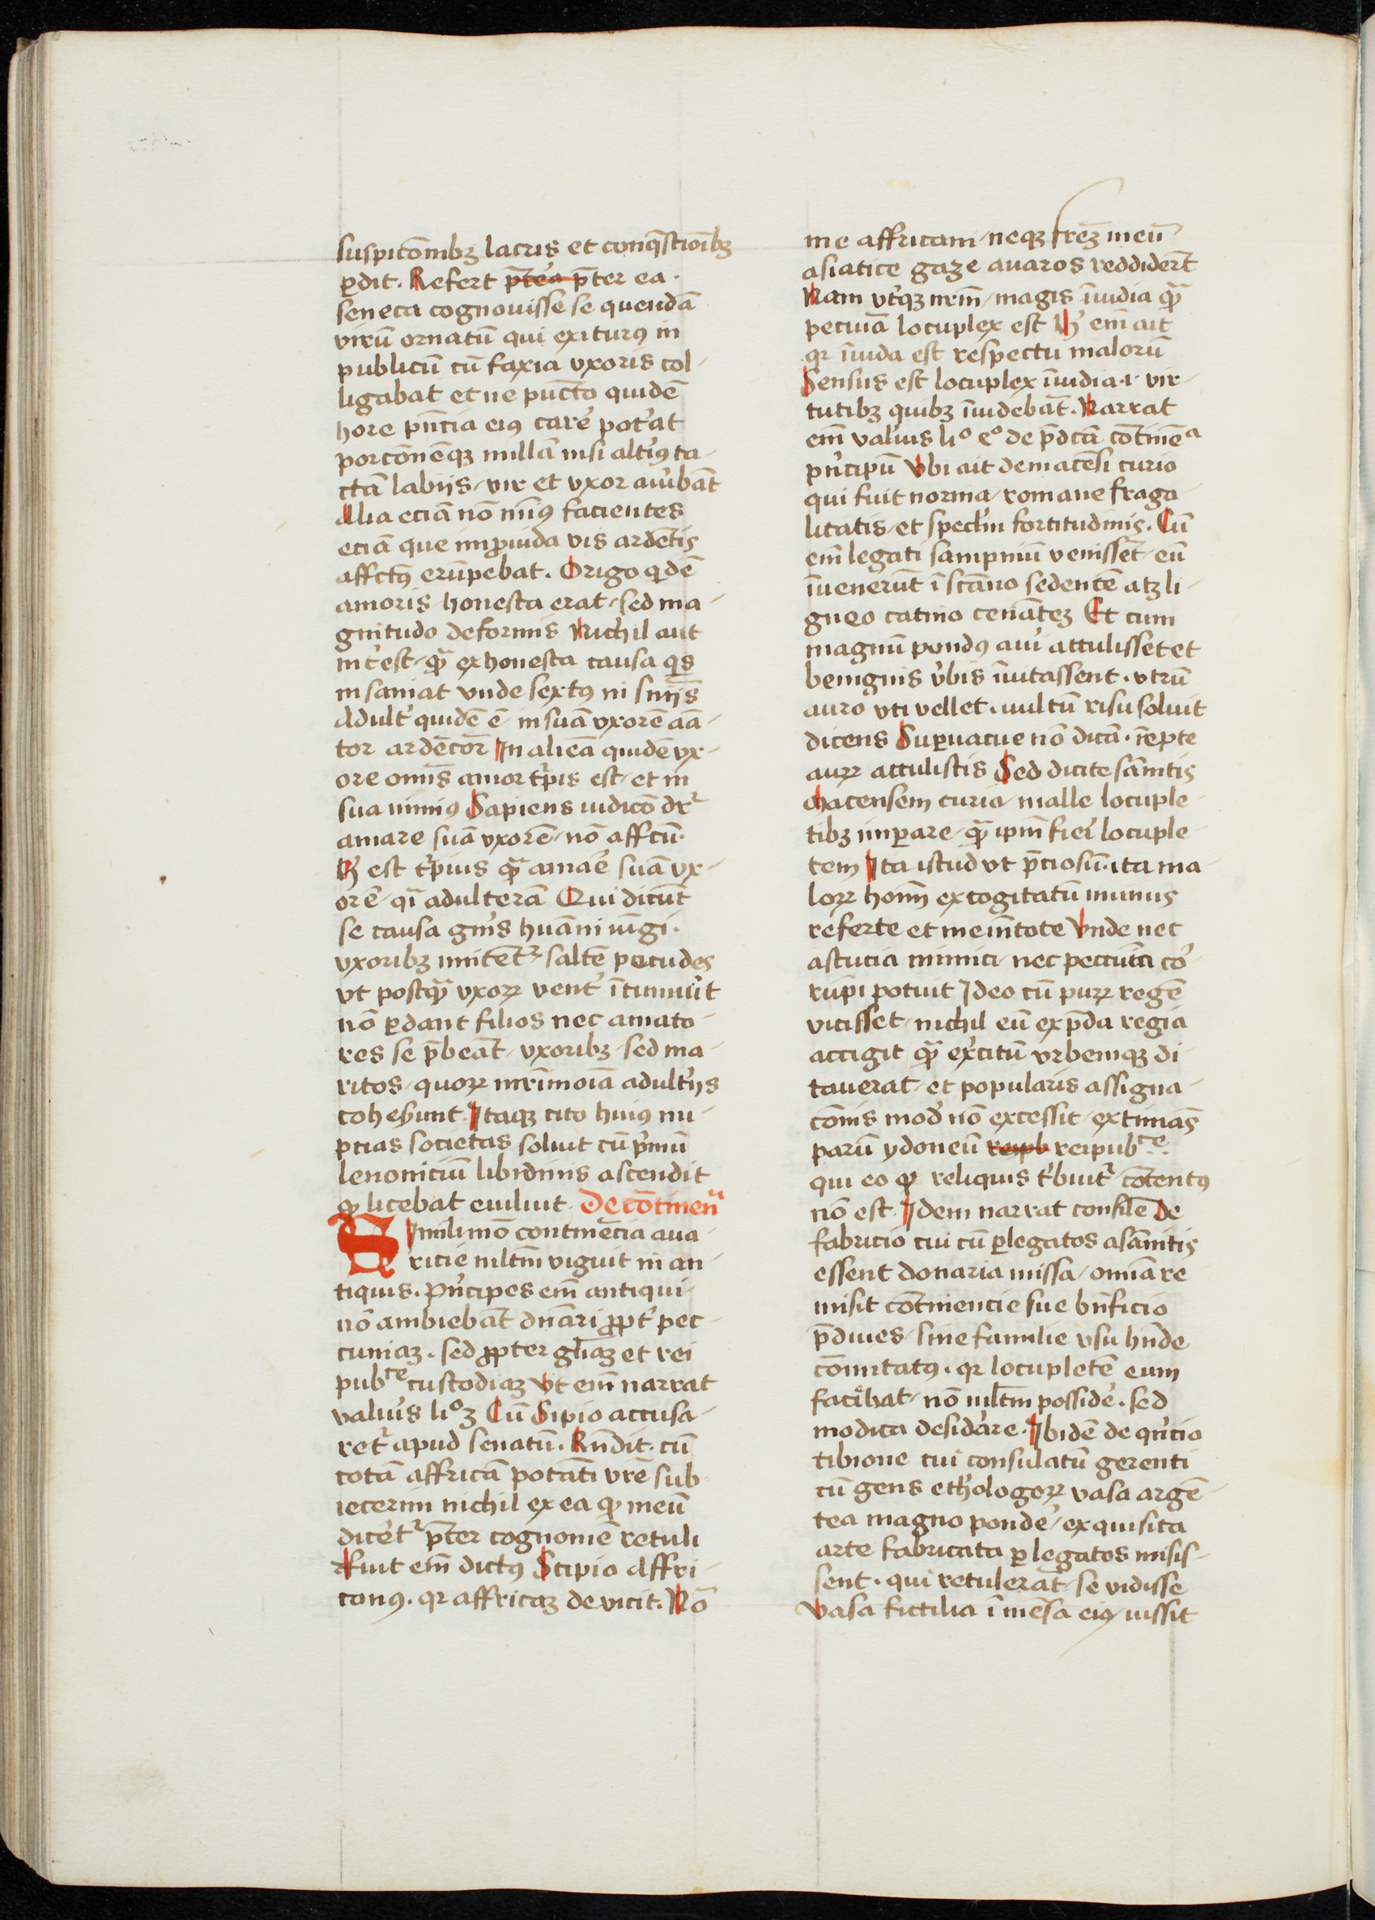 suspicōnibꝫ lacris et conq̄stionībꝫ
ꝑdit. Refert p̄tea p̄ter ea.
seneca cognouisse se quendā
virū ornatū qui exiturꝯ in
publicū cū faxia vxoris col-
ligabat et ne pūcto quidē
hore pn̄cia eiꝯ carē potat
porcōnēqꝫ nullā nisi altiꝯ ta-
ctā labijs vir et vxor auibāt
Alia eciā nō minꝯ facientes
eciā que imꝓuida vis ardētis
affctꝯ erūpebat. Origo qͥdē
amoris honesta erat sed ma-
gnitudo deformis Nichil aut
int̓est qͣ̄ ex honesta causa qͥs
insaniat vnde sextꝯ in sn̄ijs
Adult̓ quidē ē in suā vxorē aā-
tor ardēcōr In alienā quidē vx-
ore omīs amor t̓pis est et in
sua nimiꝯ Sapiens iudicō dꝫ
amare suā vxorē nō affcū.
H̓ est t̓pius qͣ̄ amaē suā vx-
orē qͣ̄ adulterā Qui dicūt
se causa gn̄is huāni iūgi.
vxoribꝫ imitent̓ saltē pecudes
vt postqͣ̄ vxorꝝ vent̓ ītumūt
nō ꝑdant filios nec amato-
res se p̄beāt vxoribꝫ sed ma-
ritos quorꝝ mr̄imoiā adultijs
cohesūnt. Itaqꝫ cito huiꝯ nu-
pcias societas soluit cū pͥmū
lenonicīū libidinis ascendit
qͩ licebat euiluit. De cōtinenͣ
Simili mō continēcia aua-
ricie ml̄tm viguit in an-
tiquis. Pn̄cipes em̄ antiqui
nō ambiebāt dn̄ari ꝓpt̓ pec-
cuniaꝫ. sed ꝓpter gl̄iaꝫ et rei
pubᶜᵉ custodiaꝫ vt em̄ narrat
valūis li⁰ 3 Cū Sipio accusa-
ret̓ apud senatū. Rn̄dit. cū
totā affricā potāti vr̄e sub
iecerim nichil ex ea qͩ meū
dicet̓ p̄ter cognomē retuli
Fuit em̄ dictꝯ Scipio Affri-
canꝯ. qr̄ affricaꝫ deuicit. Nō
me affricam neqꝫ fr̄eꝫ meū
asiatice gaze auaros reddidert̄
Nam vt̓qꝫ nr̄m magis īuidia qͣ̄
pecuiā locuplex est H̓ em̄ ait
qr̄ īuida est respectu malorū
Sensus est locuplex īuidia .i. vir-
tutibꝫ quibꝫ īuidebāt. Narrat
em̄ valūius li⁰ e⁰ de p̄dcā cōtinēᵃ
pn̄cipū Vbi ait de macēsi curio
qui fuit norma romane fraga
litatis et specl̄m fortitudinis. Cū
em̄ legati sampniū venissēt eū
īuenerūt ī scāno sedentē atꝫ li-
gneo catino cenāteꝫ Et cum
magnū pondꝯ auī attulisset et
benignis v̄bis īuitassent. vtrū
auro vti vellet. uultū risu soluit
dicens Suꝑuacue nō dicā. īepte
aurꝝ attulistis Sed dicite samītis
Macensem curiā malle locuple-
tibꝫ imꝑare qͣ̄ ipm̄ fieī locuple-
tem Ita istud vt p̄ciosū. ita ma
lorꝝ hoīm excogitatū munus
referte et meīntote Vnde nec
astucia inimici nec peccuīa cō
rūpi potuit Ideo cū purꝝ regē
vicisset nichil eū ex p̄da regia
accigit qͣ̄ ex̓citū vrbemqꝫ di
tauerat et popularis assigna-
cōnis mod̄ nō excessit extimās
parū ydoneū reipb reipubᶜᵉ.
qui eo qͩ reliquis t̓buit̓ cōtentꝯ
nō est. Idem narrat consīlē De
fabricio cui cū ꝑ legatos a samītis
essent donaria missa omīa re
misit cōtinencie sue bn̄ficio
p̄diues sine familie vsu hn̄de
cōmitatꝯ. qr̄ locupletē eum
facībat nō ml̄tm possidē. sed
modica desidāre. Ibidē de qn̄cio
tibione cui consulatū gerenti
cū gens etholegorꝝ vasa argē-
tea magno ponde exquisita
arte fabricata ꝑ legatos misis-
sent. qui retulerāt se vidisse
vasa fictilia ī mēsa eiꝯ iussit